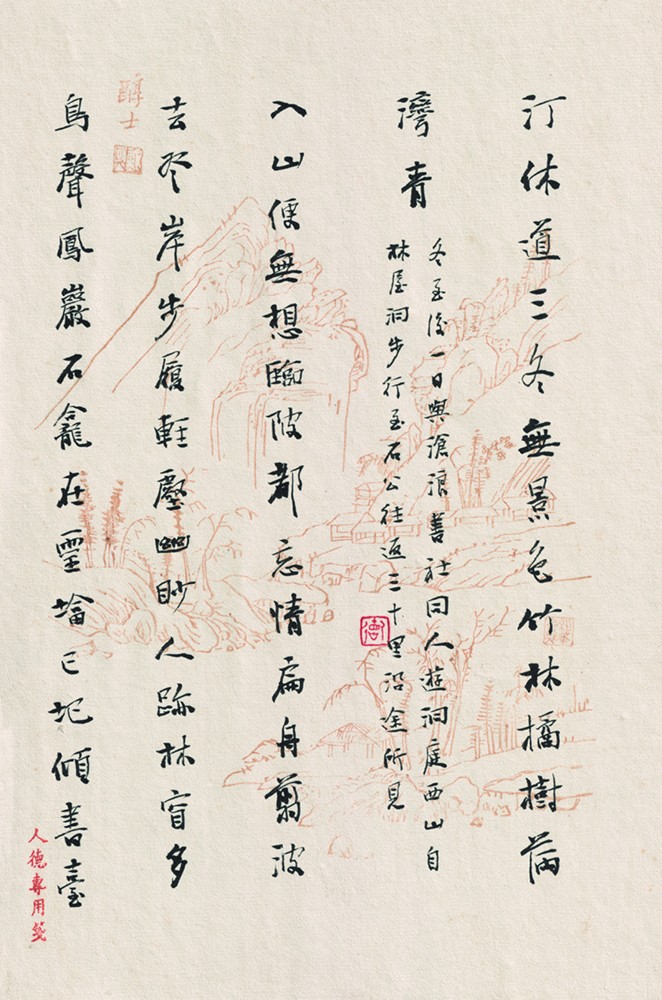 汀休道三冬無景色竹林橘樹滿
灣青
冬至後一日與滄浪書社同人遊洞庭西山自
林屋洞步行至石公往返三十里沿途所見
入山便無想臨陂都忘情扁舟剪波
去登岸步履輕壑幽眇人跡林窅多
醇士
鳥聲鳳巖石龕在靈墖已圮傾書臺
人德專用箋